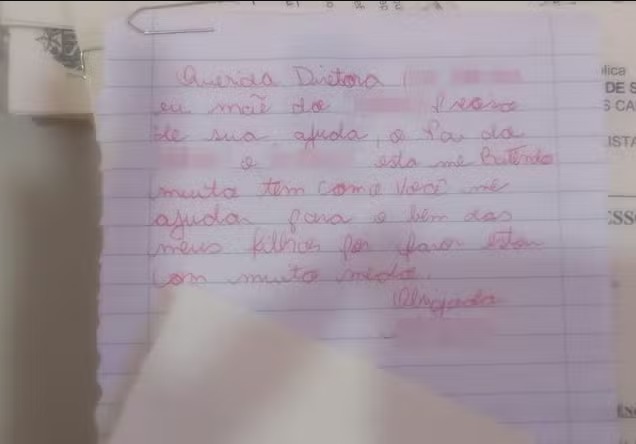 Querida Diretora
eu mãe do Preciso
de sua ajuda, o Pai do
o esta me Batendo
muito tem como você me
ajudar para o bem dos
meus filhos por favor estou
com muito medo.
Obrigada
lica
DE S
S CA
ISTA
ESSO